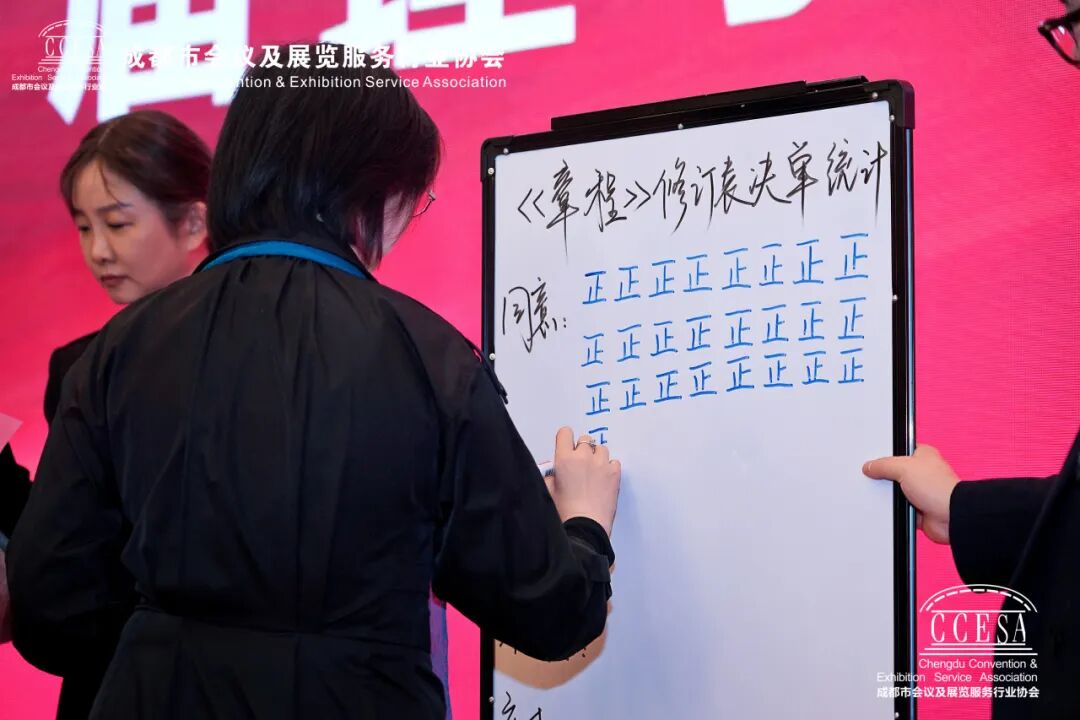 CCESA
Chengdu Convention &
Exhibition Service Association
成都市会议及展览服务行业协会
成都市会议及展览服务行业协会
Convention & Exhibition Service Association
《章程》修订表决单统计
同意:
正正正正正正正正
正正正正正正正正
正正正正正正正正
CCESA
Chengdu Convention &
Exhibition Service Association
成都市会议及展览服务行业协会